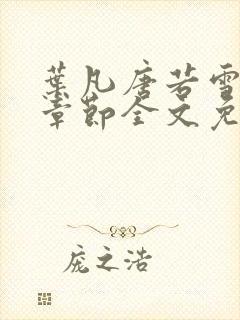 葉凡唐若雪
章節全文免
庞之浩